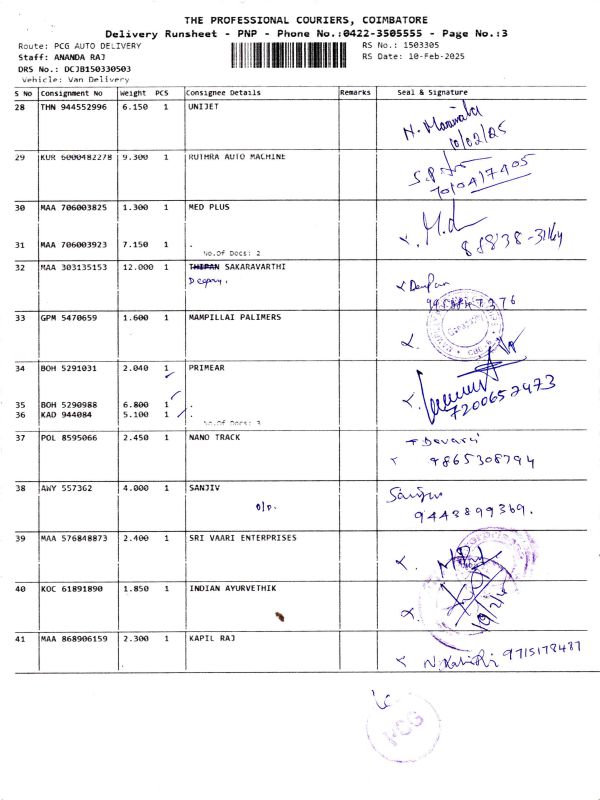 THE PROFESSIONAL COURIERS, COIMBATORE
Delivery Runsheet - PNP - Phone No.:0422-3505555 - Page No.:3
Route: PCG AUTO DELIVERY RS No.: 1503305
Staff: ANANDA RAJ RS Date: 10-Feb-2025
DRS No.: DCJB150330503
Vehicle: Van Delivery
S No Consignment No Weight PCS Consignee Details Remarks Seal & Signature
28 THN 944552996 6.150 1 UNIJET
10/02/25
29 KUR 6000482278 9.300 1 RUTHRA AUTO MACHINE
30 MAA 706003825 1.300 1 MED PLUS
31 MAA 706003923 7.150 1 .
No.Of Docs: 2
32 MAA 303135153 12.000 1 THIPAN SAKARAVARTHI
33 GPM 5470659 1.600 1 MAMPILLAI PALIMERS
34 BOH 5291031 2.040 1 PRIMEAR
35 BOH 5290988 6.800 1 .
36 KAD 944084 5.100 1 .
No.Of Docs: 3
7200652473
37 POL 8595066 2.450 1 NANO TRACK
9865308794
38 AWY 557362 4.000 1 SANJIV
9443899369.
39 MAA 576848873 2.400 1 SRI VAARI ENTERPRISES
40 KOC 61891890 1.850 1 INDIAN AYURVETHIK
41 MAA 868906159 2.300 1 KAPIL RAJ
9715178487
PCG